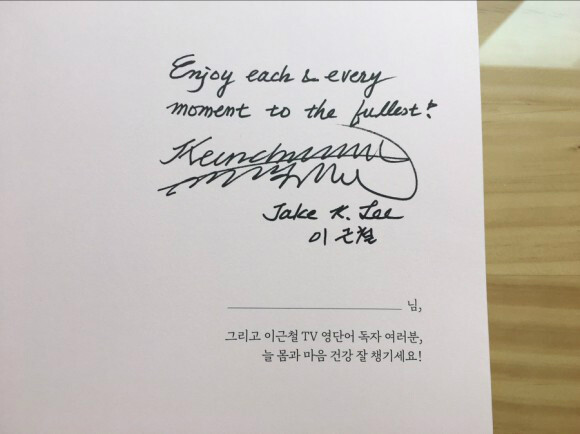 Enjoy each & every
moment to the fullest!
Jake K. Lee
이근철
님,
그리고 이근철 TV 영단어 독자 여러분,
늘 몸과 마음 건강 잘 챙기세요!